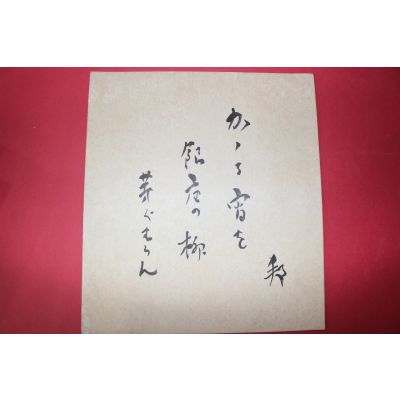 かゝる宵を
銀座の柳
芽ぐむらん